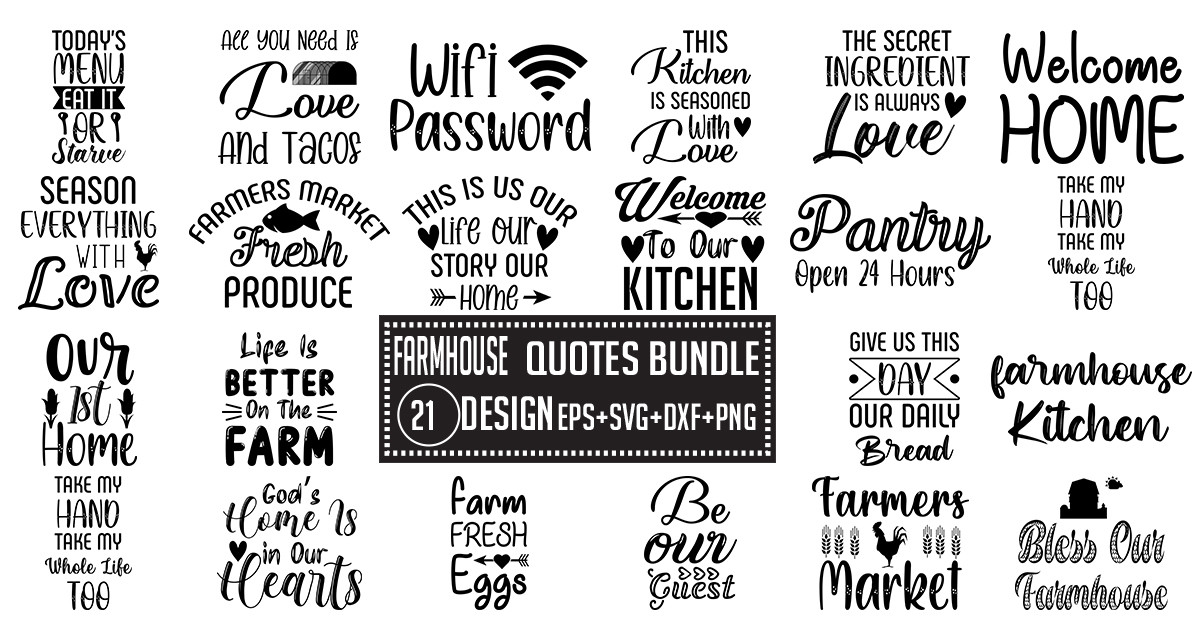 TODAY'S
MENU
EAT IT
OR
Starve
All you need is
Love
And Tacos
Wifi
Password
THIS
Kitchen
IS SEASONED
With
Love
THE SECRET
INGREDIENT
IS ALWAYS
Love
Welcome
HOME
SEASON
EVERYTHING
WITH
Love
FARMERS MARKET
Fresh
PRODUCE
THIS IS US OUR
Life our
STORY OUR
Home
Welcome
To Our
KITCHEN
Pantry
Open 24 Hours
TAKE MY
HAND
TAKE MY
Whole Life
TOO
Our
1st
Home
Life Is
BETTER
On The
FARM
FARMHOUSE QUOTES BUNDLE
21 DESIGN EPS+SVG+DXF+PNG
GIVE US THIS
DAY
OUR DAILY
Bread
farmhouse
Kitchen
TAKE MY
HAND
TAKE MY
Whole Life
TOO
God's
Home Is
in Our
Hearts
Farm
FRESH
Eggs
Be
our
Guest
Farmers
Market
Bless Our
Farmhouse